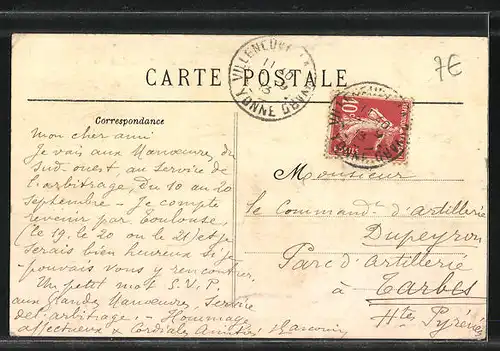 7€
CARTE POSTALE
VILLENEUVE
YONNE
10
Correspondance
Mon cher ami
Je vais aux Manœuvres du
Sud-ouest, au service de
l'arbitrage, du 10 au 20
Septembre - Je compte
revenir par Toulouse,
(le 19, le 20 ou le 21) et je
serais bien heureux si je
pouvais vous y rencontrer.
Un petit mot S.V.P.
aux Grandes Manœuvres, Service
de l'arbitrage. - Hommage
affectueux & Cordiales Amitiés
Monsieur
le Command.t d'Artillerie
Dupeyron
Parc d'Artillerie
à Tarbes
Htes Pyrénées